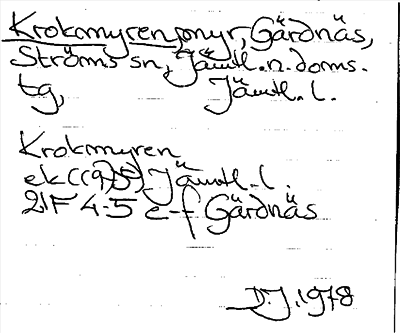 Krokmyren, myr, Gärdnäs,
Ströms sn, Jämtl. n. doms.
tg, Jämtl. l.
Krokmyren
ek ((19)75) Jämtl. l.
21F 4-5 e-f Gärdnäs
D.J. 1978